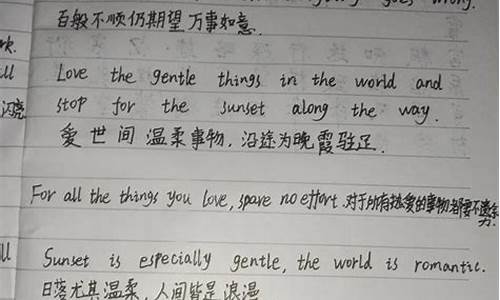 goes wrong.
百般不顺仍期望万事如意.
ll
Love the gentle things in the world and
stop for the sunset along the way.
闪亮
爱世间温柔事物，沿途为晚霞驻足.
For all the things you love, spare no effort. 对于所有热爱的事物都要不遗余力.
ll
Sunset is especially gentle, the world is romantic.
日落尤其温柔，人间皆是浪漫